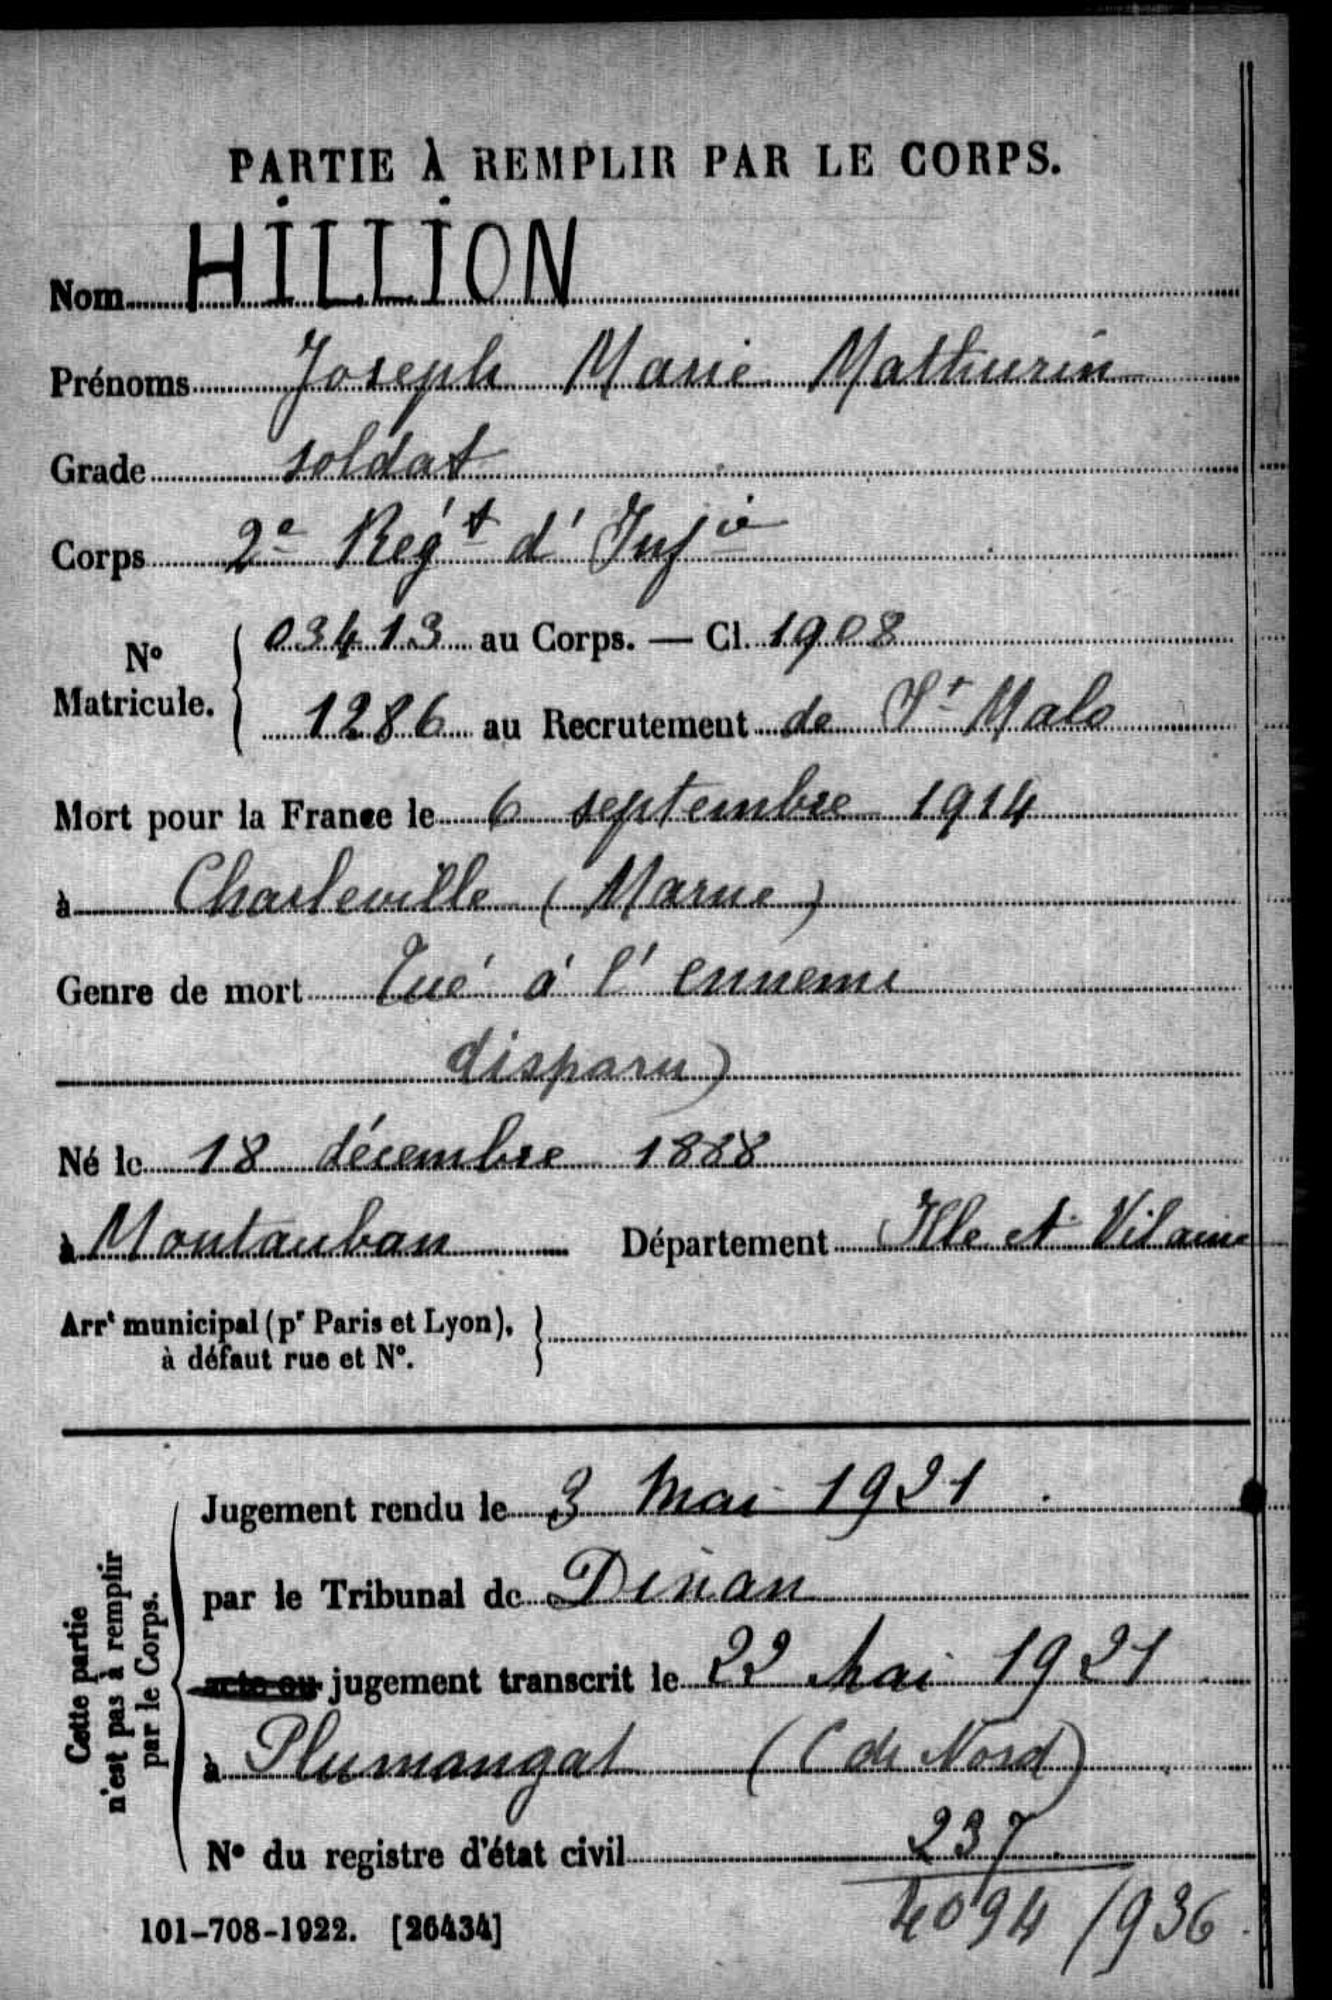 PARTIE À REMPLIR PAR LE CORPS.
Nom HILLION
Prénoms Joseph Marie Mathurin
Grade soldat
Corps 2e Rég't d'Infie
No Matricule. { 03413 au Corps. — Cl. 1908
1286 au Recrutement de St Malo
Mort pour la France le 6 septembre 1914
à Charleville (Marne)
Genre de mort Tué à l'ennemi
disparu)
Né le 18 décembre 1888
à Montauban Département Ille et Vilaine
Arrt municipal (pr Paris et Lyon), }
à défaut rue et No.
Cette partie
n'est pas à remplir
par le Corps.
Jugement rendu le 3 Mai 1921
par le Tribunal de Dinan
acte ou jugement transcrit le 22 Mai 1921
à Plumaugat (C du Nord)
No du registre d'état civil 237
4094/936
101-708-1922. [26434]